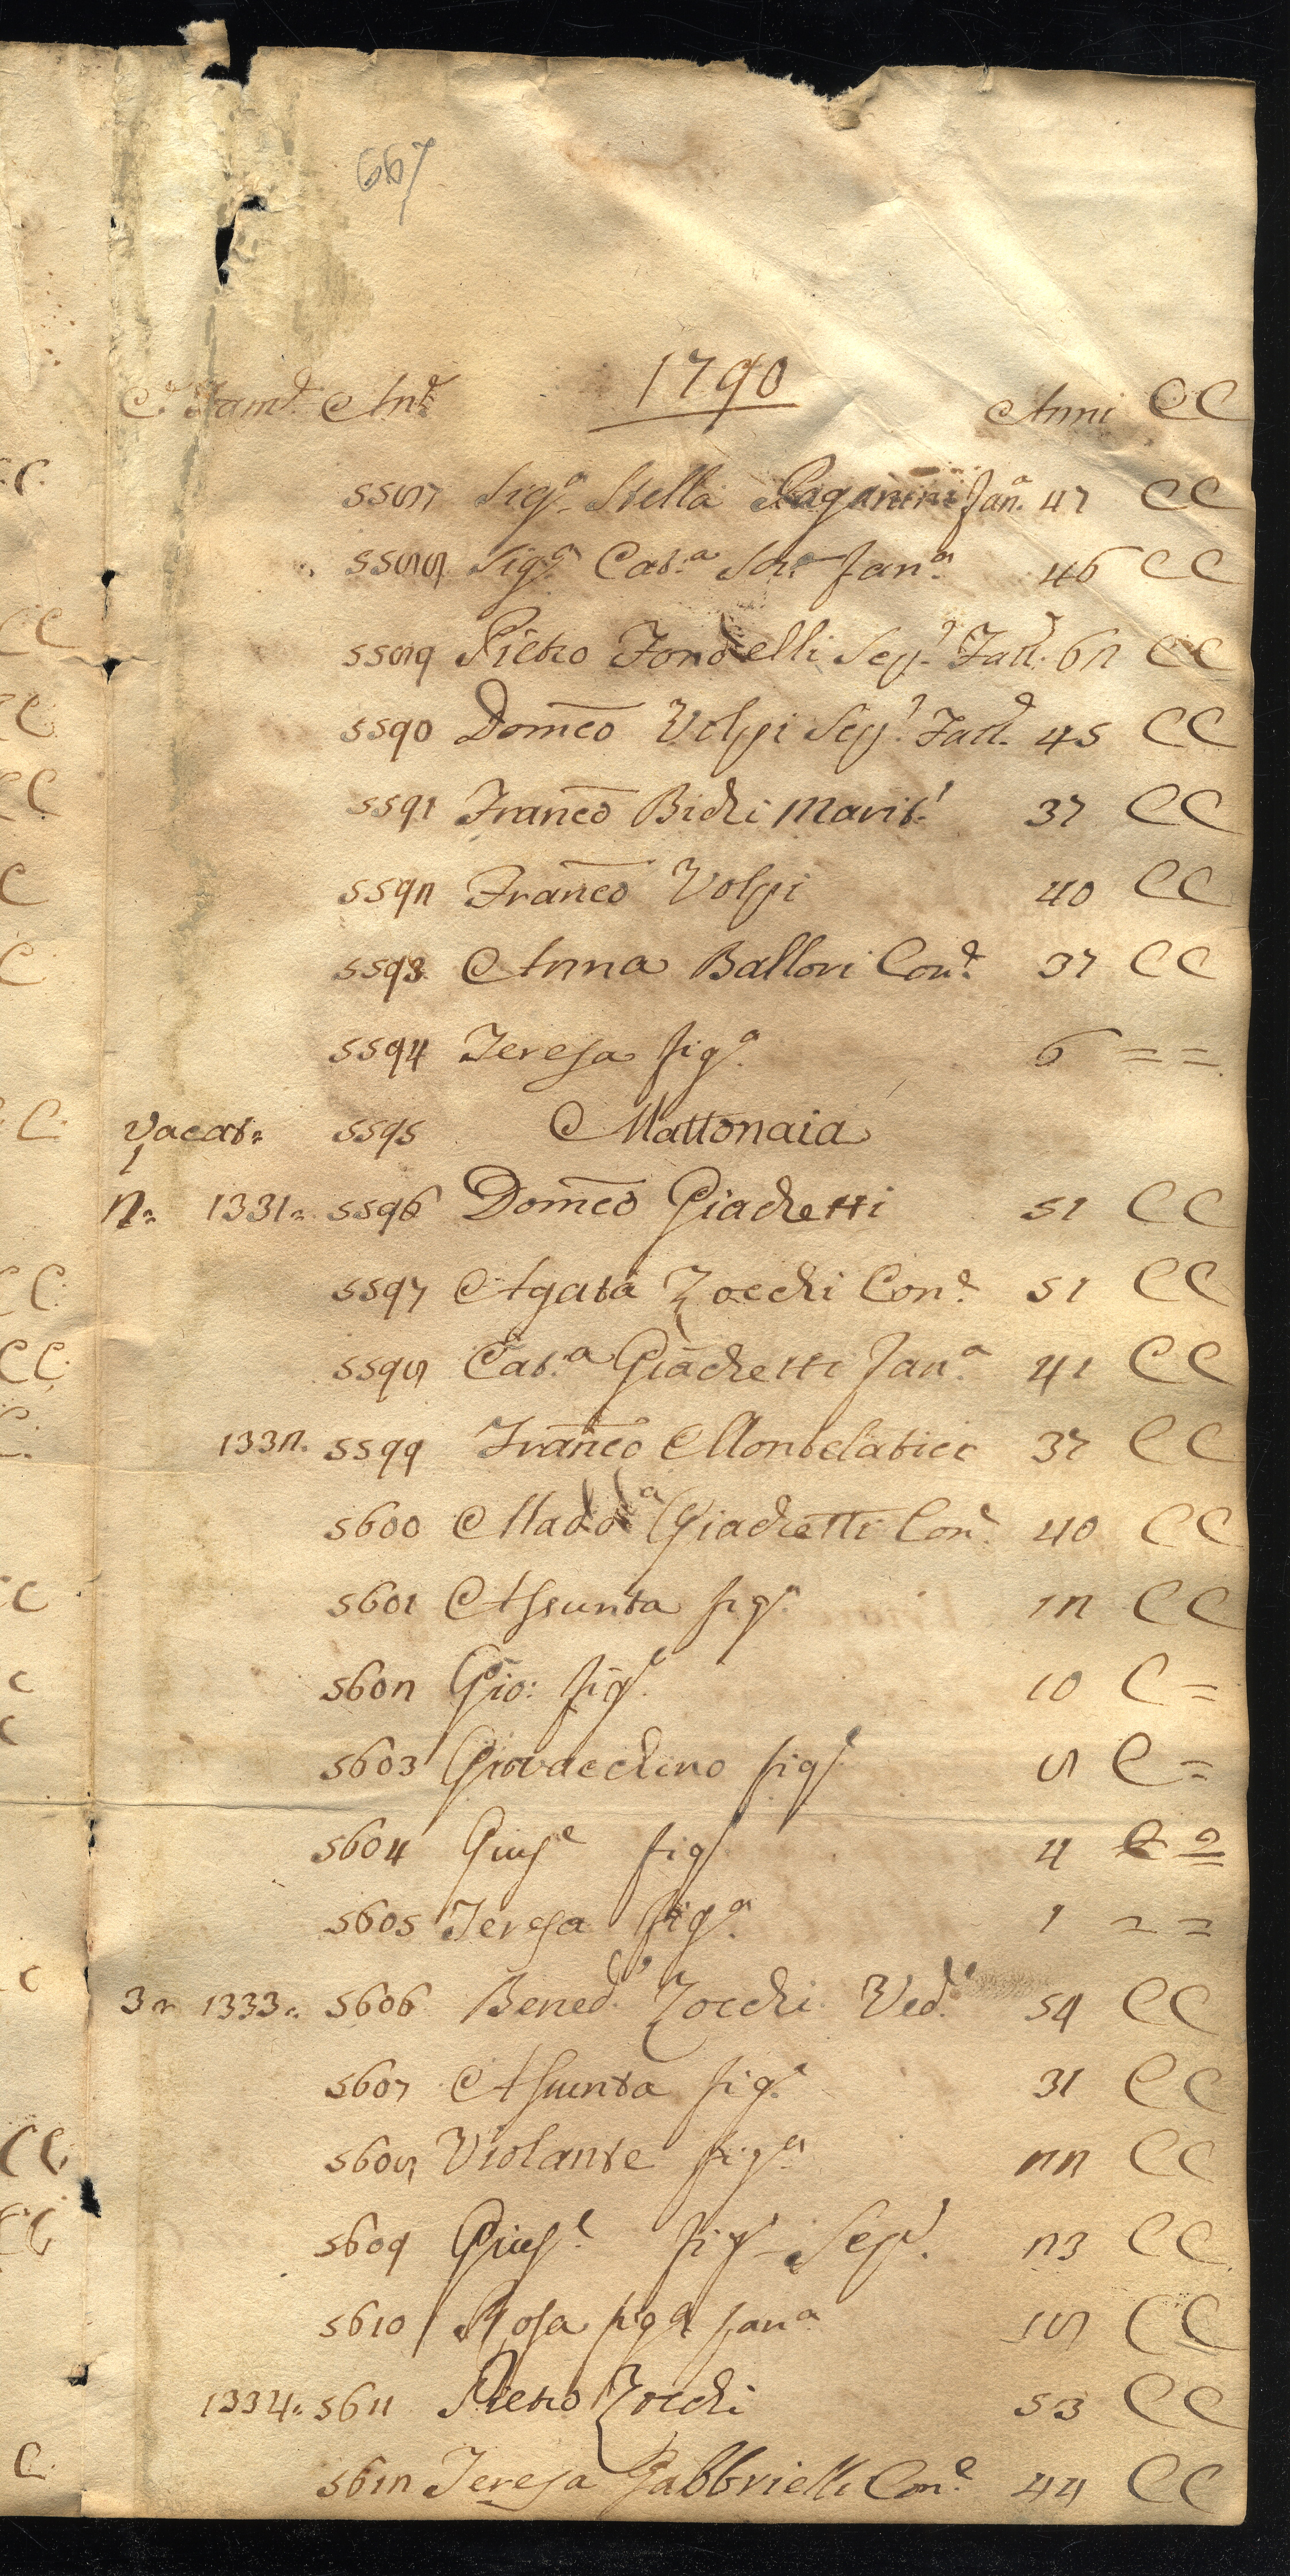 667
1790
C. Fam.e An.e Anni CC
5587 Sig.a Stella Paganini fan.a 47 CC
5588 Sig.a Cat.a fan.a 46 CC
5589 Pietro Fondelli Sep.e Fatt.e 62 CC
5590 Dom̄co Volpi Sep.e Fatt.e 45 CC
5591 Franc̄o Bichi Marit.o 37 CC
5592 Franc̄o Volpi 40 CC
5593 Anna Ballori Con.e 37 CC
5594 Teresa fig.a 6 = =
Vacat= 5595 Mattonaia
2= 1331= 5596 Dom̄co Giachetti 51 CC
5597 Agata Zocchi Con.e 51 CC
5598 Cat.a Giachetti fan.a 41 CC
1332. 5599 Franc̄o Montelatici 37 CC
5600 Madd.a Giachetti Con.e 40 CC
5601 Assunta fig.a 12 CC
5602 Gio: fig.o 10 C =
5603 Giovacchino fig.o 8 C =
5604 Gius.e fig.o 4 =
5605 Teresa fig.a 1 = =
3= 1333= 5606 Bened.o Zocchi Ved.o 54 CC
5607 Assunta fig.a 31 CC
5608 Violante fig.a 22 CC
5609 Gius.e fig.o Sep.e 23 CC
5610 Rosa fig.a fan.a 18 CC
1334= 5611 Pietro Zocchi 53 CC
5612 Teresa Gabbrielli Con.e 44 CC